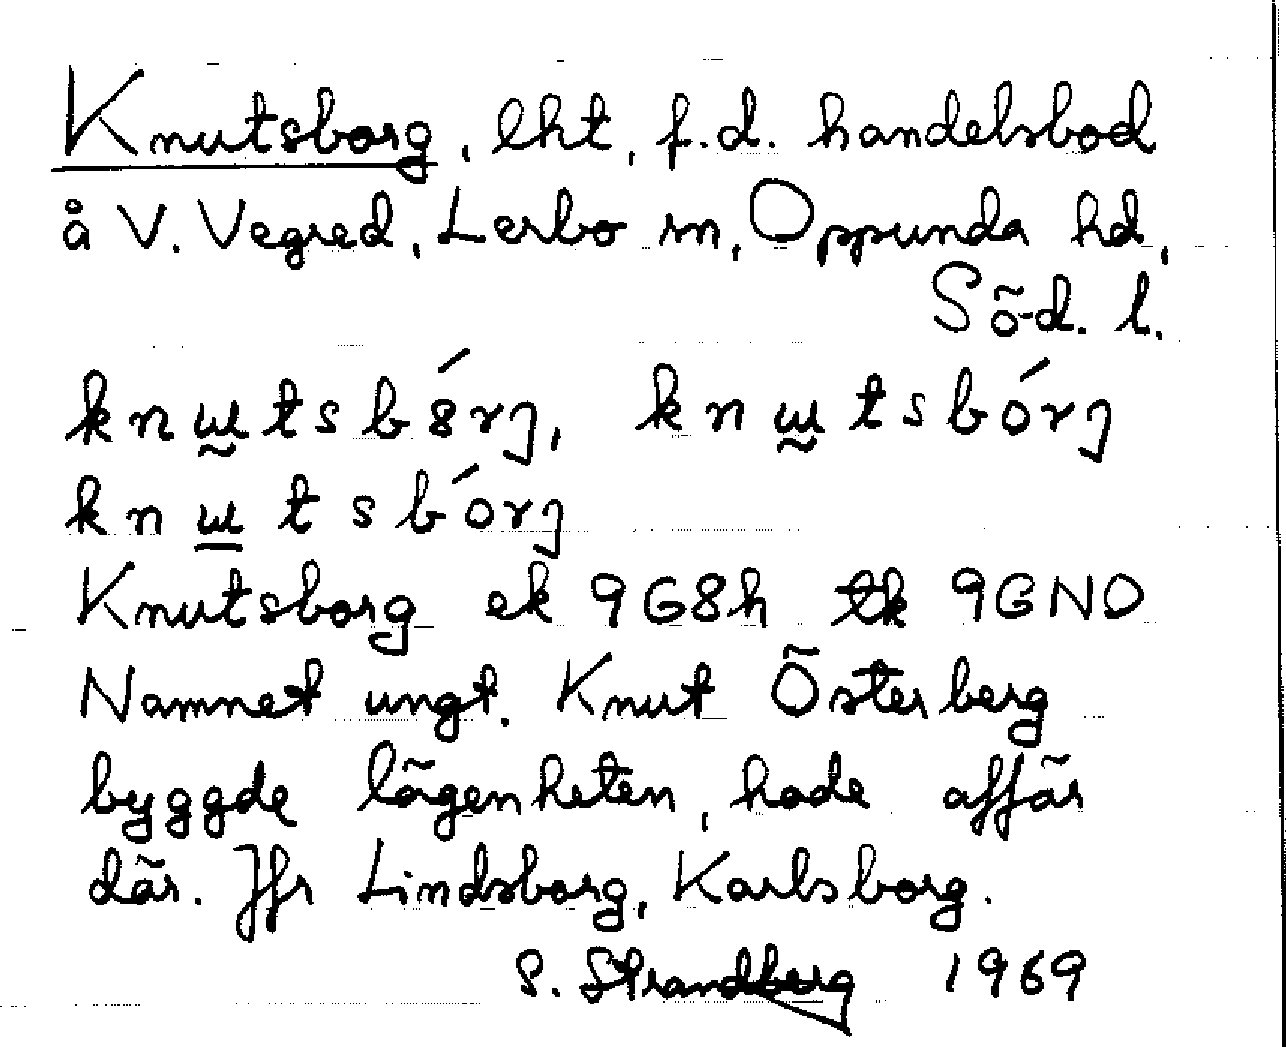 Knutsborg, lht, f.d. handelsbod
å V. Vegred, Lerbo sn, Oppunda hd,
Söd. l.
knɯ̰tsb8́rȷ, knɯ̰tsbórȷ
knɯ̲tsbórȷ
Knutsborg ek 9G8h tk 9GNO
Namnet ungt. Knut Österberg
byggde lägenheten, hade affär
där. Jfr Lindsborg, Karlsborg.
S. Strandberg 1969